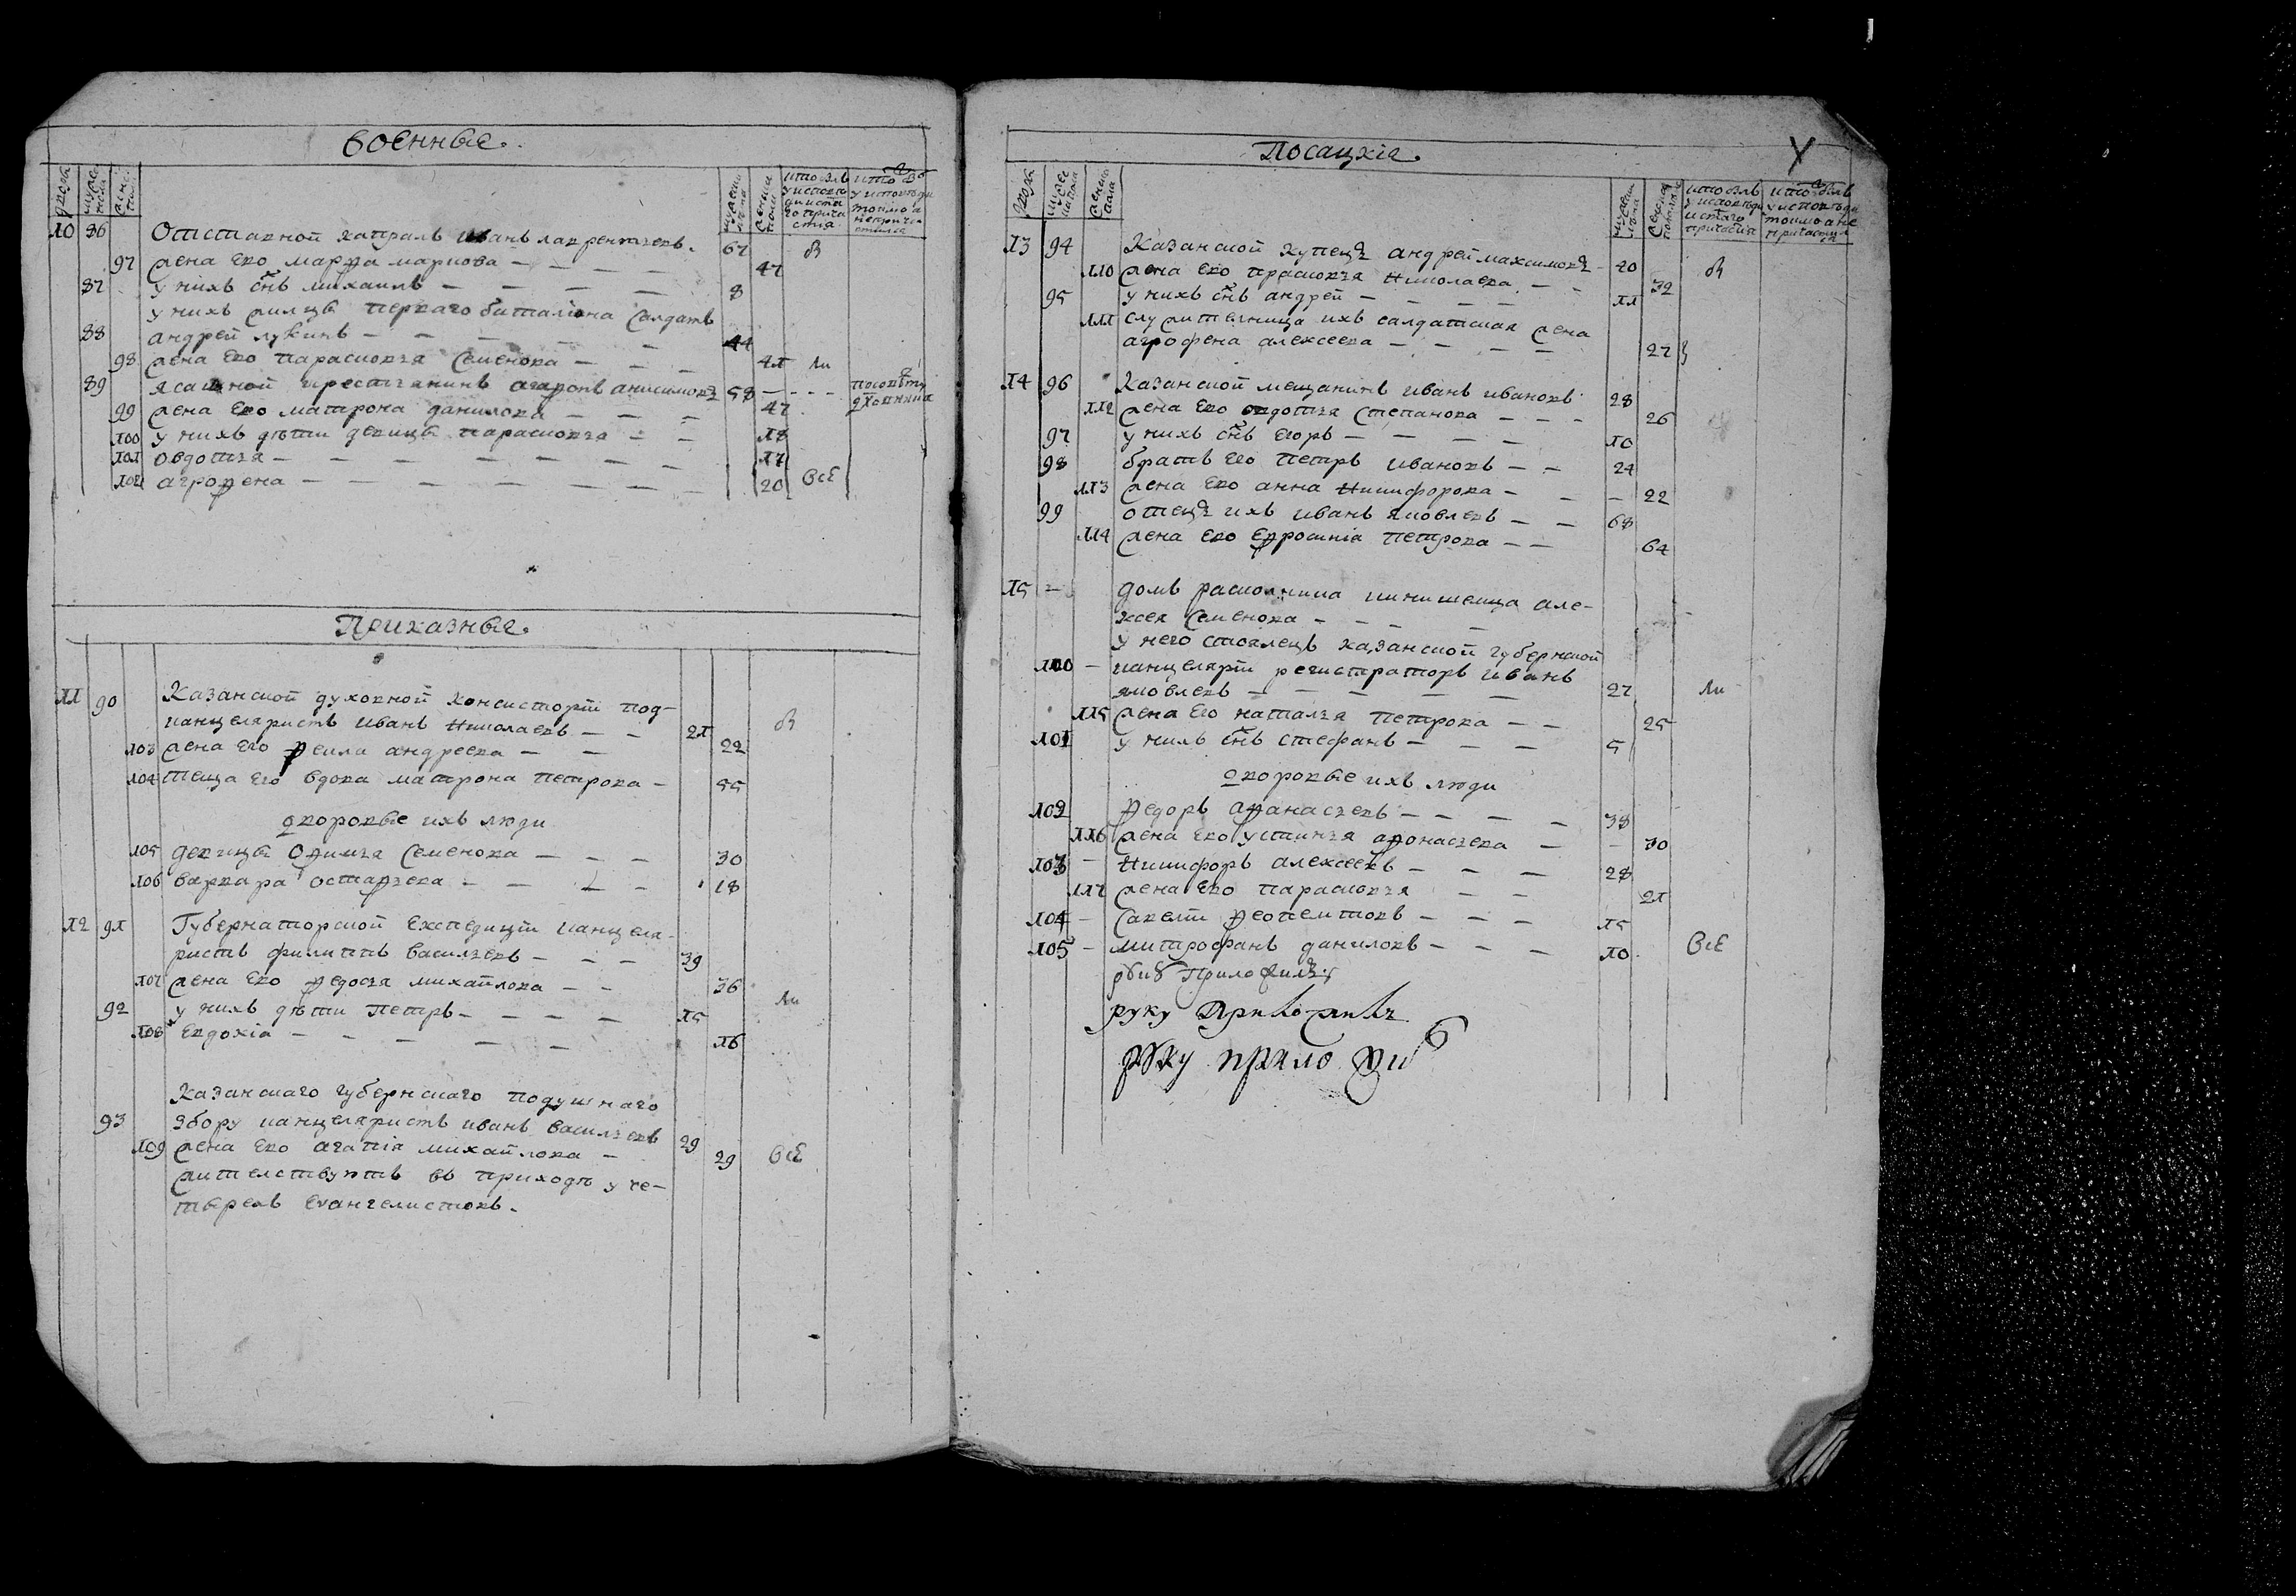 Военные.
двора
мужеска пола
женска пола
мужеска пола
женска пола
кто былъ у исповеди и свята го прича стия
кто былъ у исповеди токмо а непричастился
10 86 Отставной капралъ Иванъ лаврентьевъ. 67 б
97 жена ево марфа маркова — — — — 47
87 у нихъ снъ михаилъ — — — — 8
у нихъ жилцы перваго баталиона салдатъ
88 андрей лукинъ — — — — — 44
98 жена ево парасковья Семенова — — — 41 ли
89 ясашной крестьянинъ агафонъ анисимовъ 58 — — — посовету духовника
99 жена ево матрона данилова — — — 47
100 у нихъ дѣти девицы парасковья — — 18
101 овдотья — — — — — — — — 17
102 агрофена — — — — — — — — 20 Всѣ
Приказные.
11 90 Казанской духовной консисторіи под-
канцеляристъ иванъ Николаевъ — — 21 б
103 жена Его феила андреева — — 22
104 теща Его вдова матрона петрова — 55
дворовые ихъ люди
105 девицы Офимья Семенова — — — 30
106 варвара остафьева — — — — 18
12 91 Губернаторской Експедиціи канцеля-
ристъ филиппъ васильевъ — — — 39
107 жена ево федосья михайлова — — 36
92 у нихъ дѣти петръ — — — — 15 ли
108 Евдокіа — — — — — 16
Казанскаго губернскаго подушнаго
93 збору канцеляристъ иванъ васильевъ 29
109 жена ево агапіа михайлова — 29 всѣ
жителствуютъ въ приходѣ у че-
тырехъ Евангелистовъ.
Посацкіе. У
двора
мужеска пола
женска пола
мужеска пола
женска пола
кто былъ у исповеди и стаго причастия
кто былъ у исповеди токмо а не причастился
13 94 Казанской купецъ андрей максимовъ — 40 б
110 жена ево прасковья Николаева — — 32
95 у нихъ снъ андрей — — — — 11
111 служителница ихъ салдатская жена
агрофена алексеева — — — — 27
14 96 Казанской мещанинъ иванъ ивановъ 28
112 жена ево овдотья степанова — — — 26
97 у нихъ снъ егоръ — — — — 10
98 братъ его петръ ивановъ — — 24
113 жена ево анна Никифорова — — — 22
99 отецъ ихъ иванъ яковлевъ — — 68
114 жена ево Ефросиніа петрова — — 64
15 — домъ расколника але-
ксея Семенова — — — —
у него стоялецъ казанской губернской
100 — канцелярии регистраторъ иванъ
яковлевъ — — — — — 27 ли
115 жена его наталья петрова — — 25
101 у нихъ снъ стефанъ — — — 5
дворовые ихъ люди
102 федоръ афанасьевъ — — — — 38
116 жена ево устинья афонасьева — — 30
103 — Никифоръ алексеевъ — — — 28
117 жена ево парасковья — — 21
104 — Савелій феопемптовъ — — — 15
105 — митрофанъ даниловъ — — — 10 Всѣ
руку Приложилъ
руку Приложилъ
руку приложи